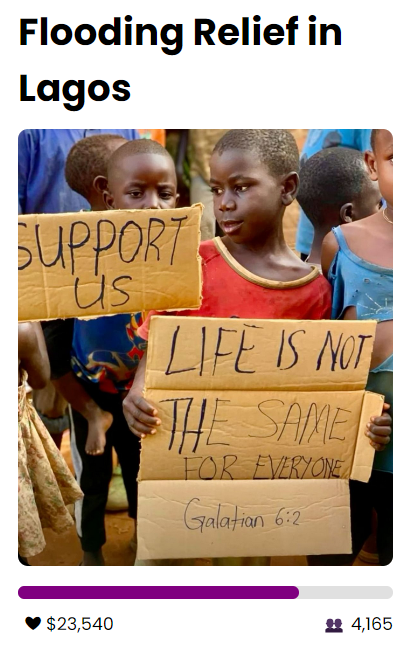 Flooding Relief in
Lagos
SUPPORT
US
LIFE IS NOT
THE SAME
FOR EVERYONE
Galatian 6:2
$23,540
4,165